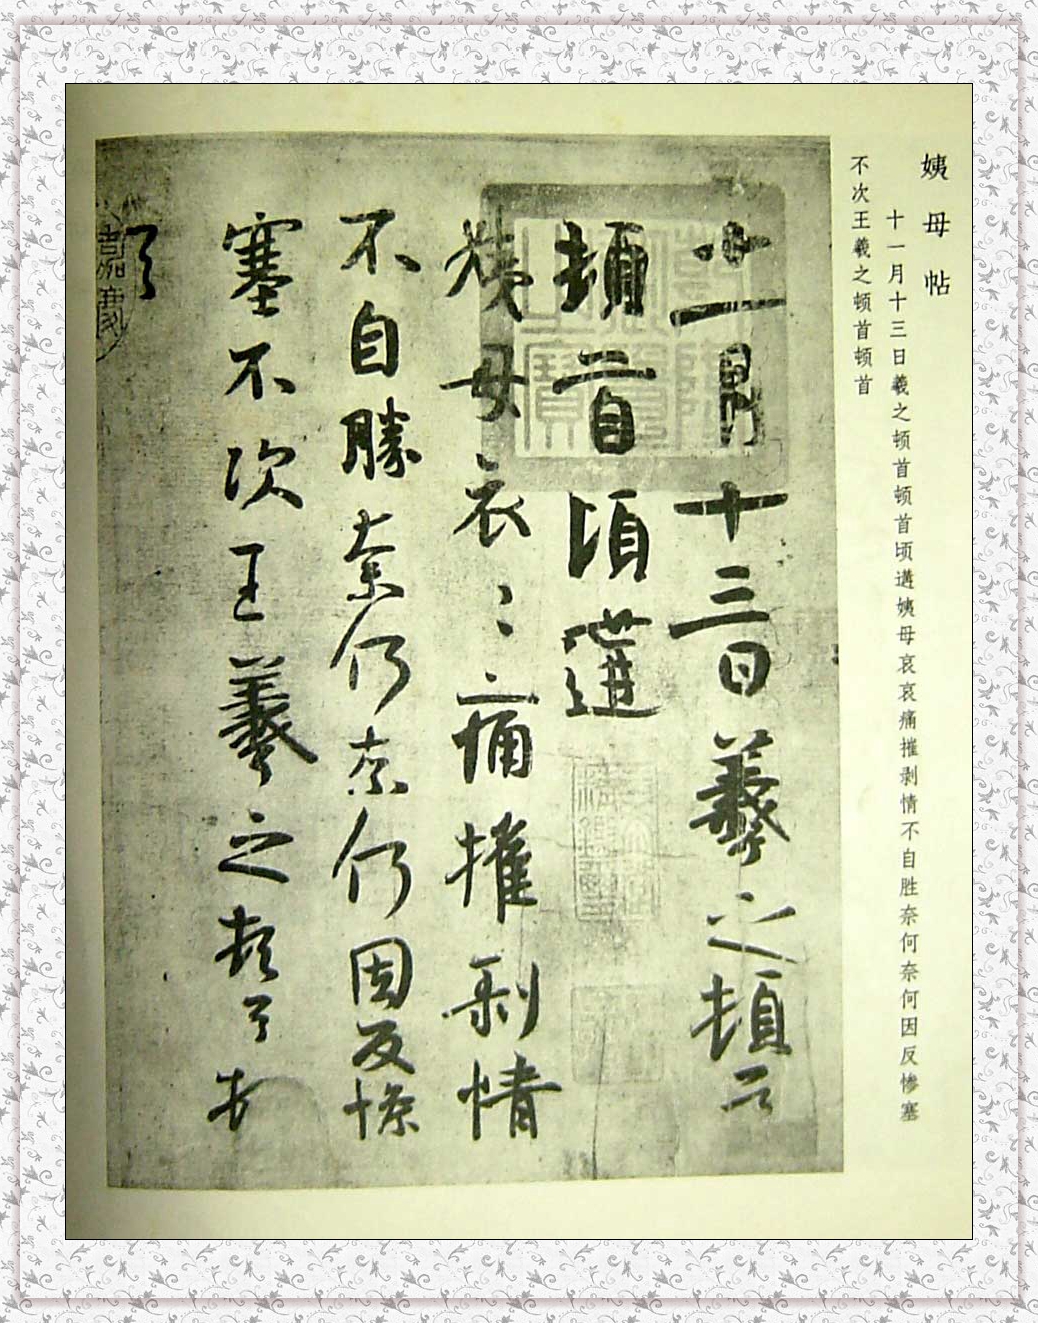 姨母帖
十一月十三日羲之顿首顿首顷遘姨母哀哀痛摧剥情不自胜奈何奈何因反惨塞
不次王羲之顿首顿首
十一月十三日羲之頓首
頓首頃遘
姨母哀〻痛摧剥情
不自勝奈何奈何因反慘
塞不次王羲之頓首頓
首